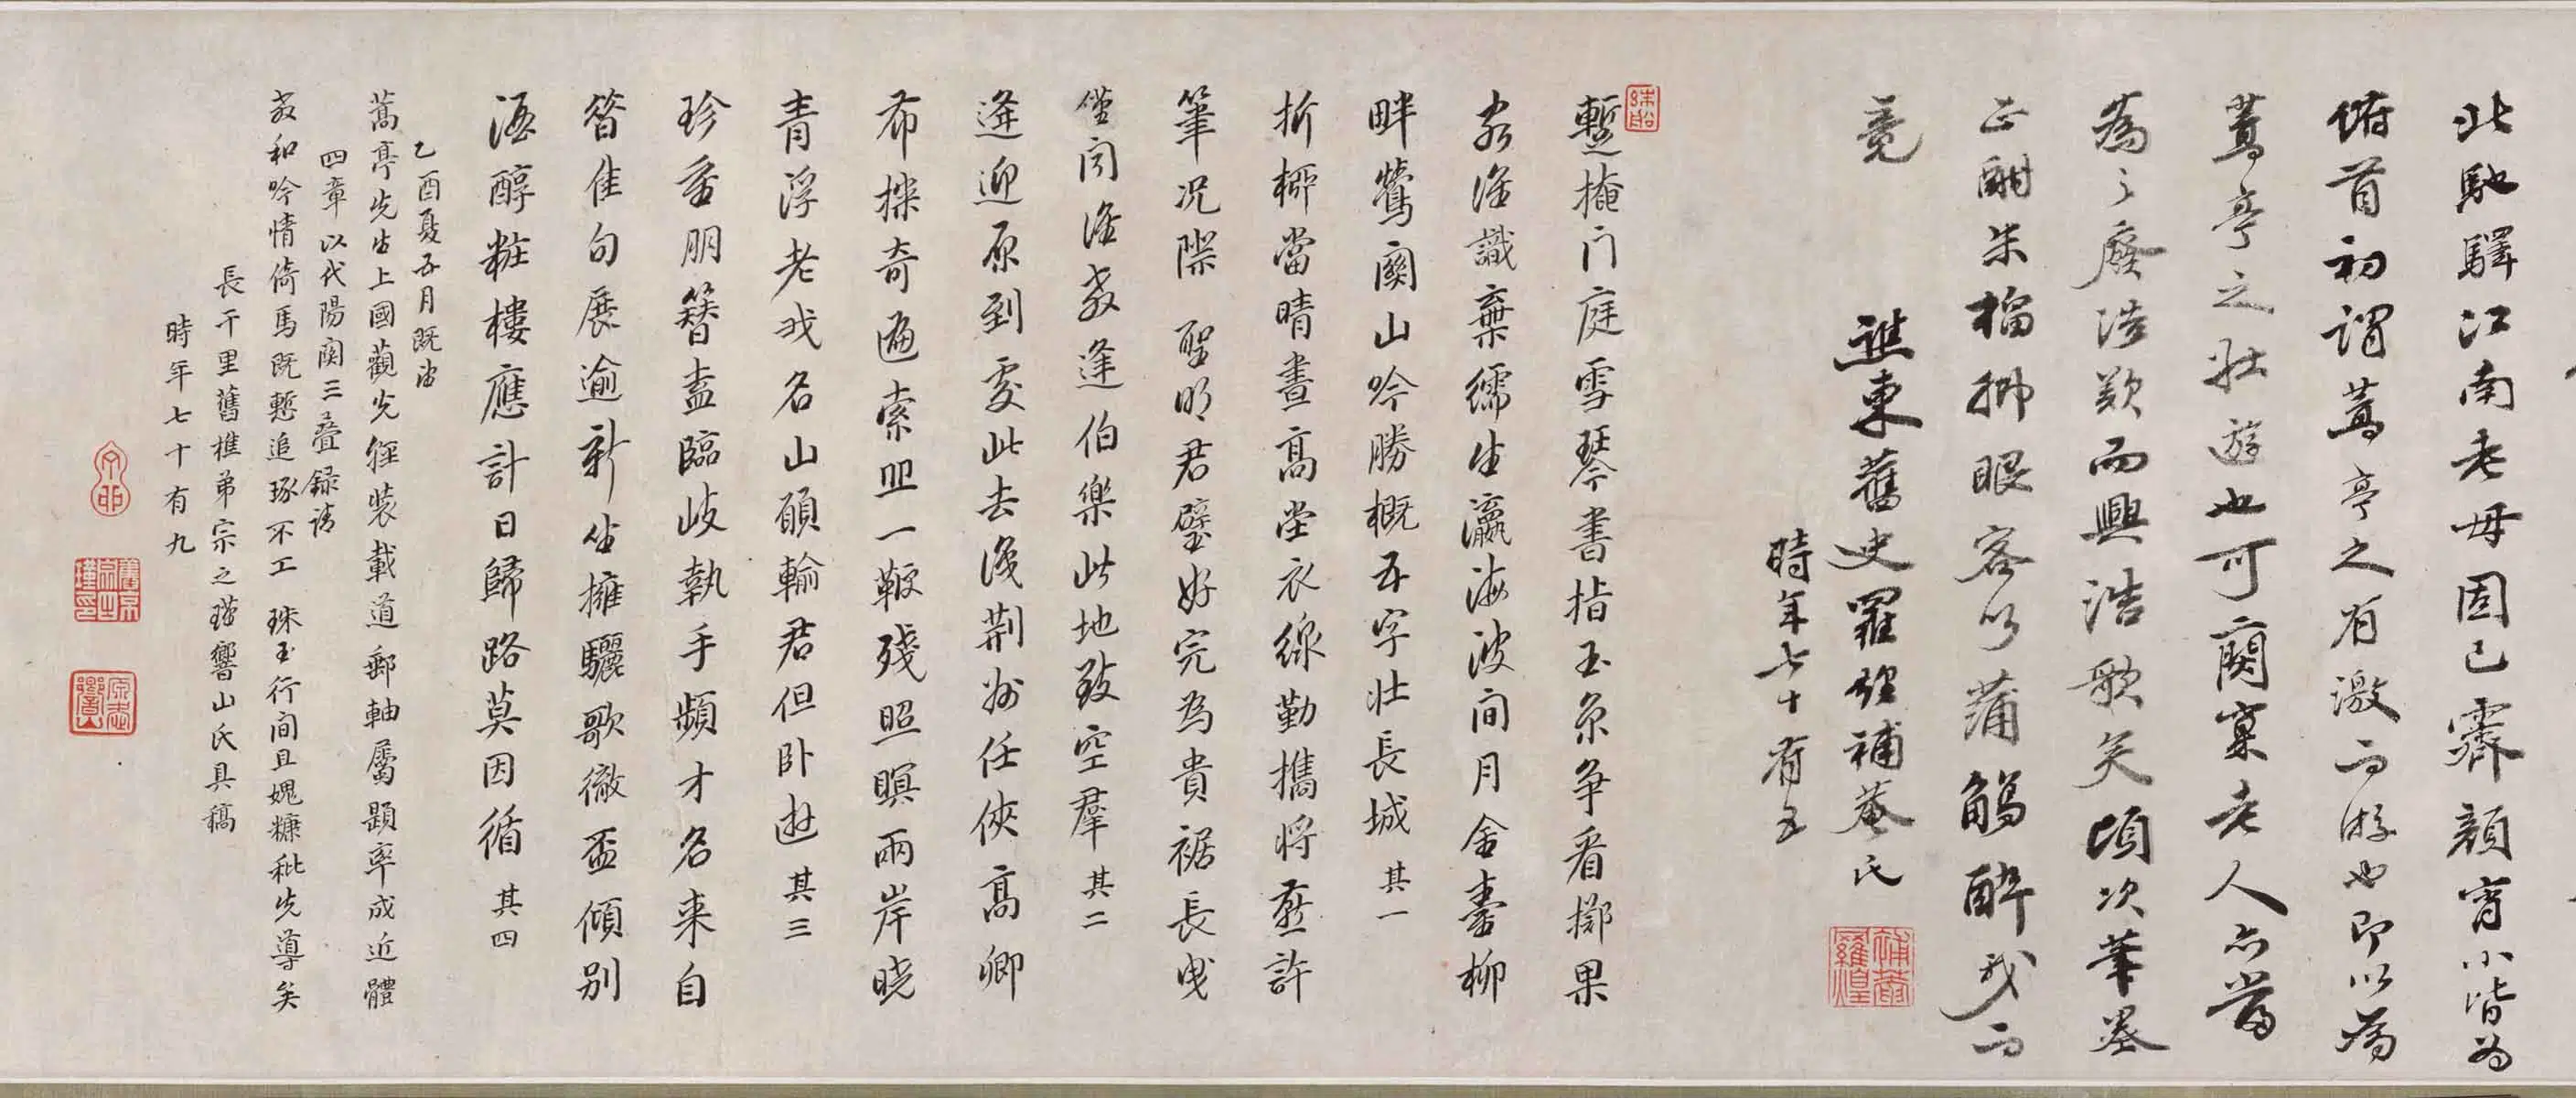 北馳驛江南老母固已霽顏宵小皆為
俯首初謂蒿亭之有激而游也即以為
蒿亭之壯遊也可闋稟老人亦為
為之廢浩歎而興浩歌矣頃次筆墨
正酣朱榴柳眼客以蒲觴醉我而
竟
譙東舊史羅煌補菴氏
時年七十有五
蹔掩門庭雪琴書指玉京爭看擲果
客誰識棄繻生瀛海波間月金臺柳
畔鶯關山吟勝概五字壯長城 其一
折柳當晴晝高堂衣線勤攜將燕許
筆况際 聖明君璧好完為貴裾長曳
僅聞誰教逢伯樂此地致空羣 其二
逢迎原到處此去識荊州任俠高卿
布探奇遍索丘一鞭殘照暝兩岸曉
青浮老我名山願輸君但卧遊 其三
珍重朋簪盍臨岐執手頻才名来自
昝佳句展逾新坐擁驪歌徹盃傾别
酒醇粧樓應計日歸路莫因循 其四
乙酉夏五月既望
蒿亭先生上國觀光經裝載道郵軸屬題率成近體
四章以代陽関三疊録請
教和吟情倚馬既慙追琢不工 珠玉行間且媿糠秕先導矣
長干里舊樵弟宗之瑾響山氏具稿
時年七十有九
補菴
羅煌